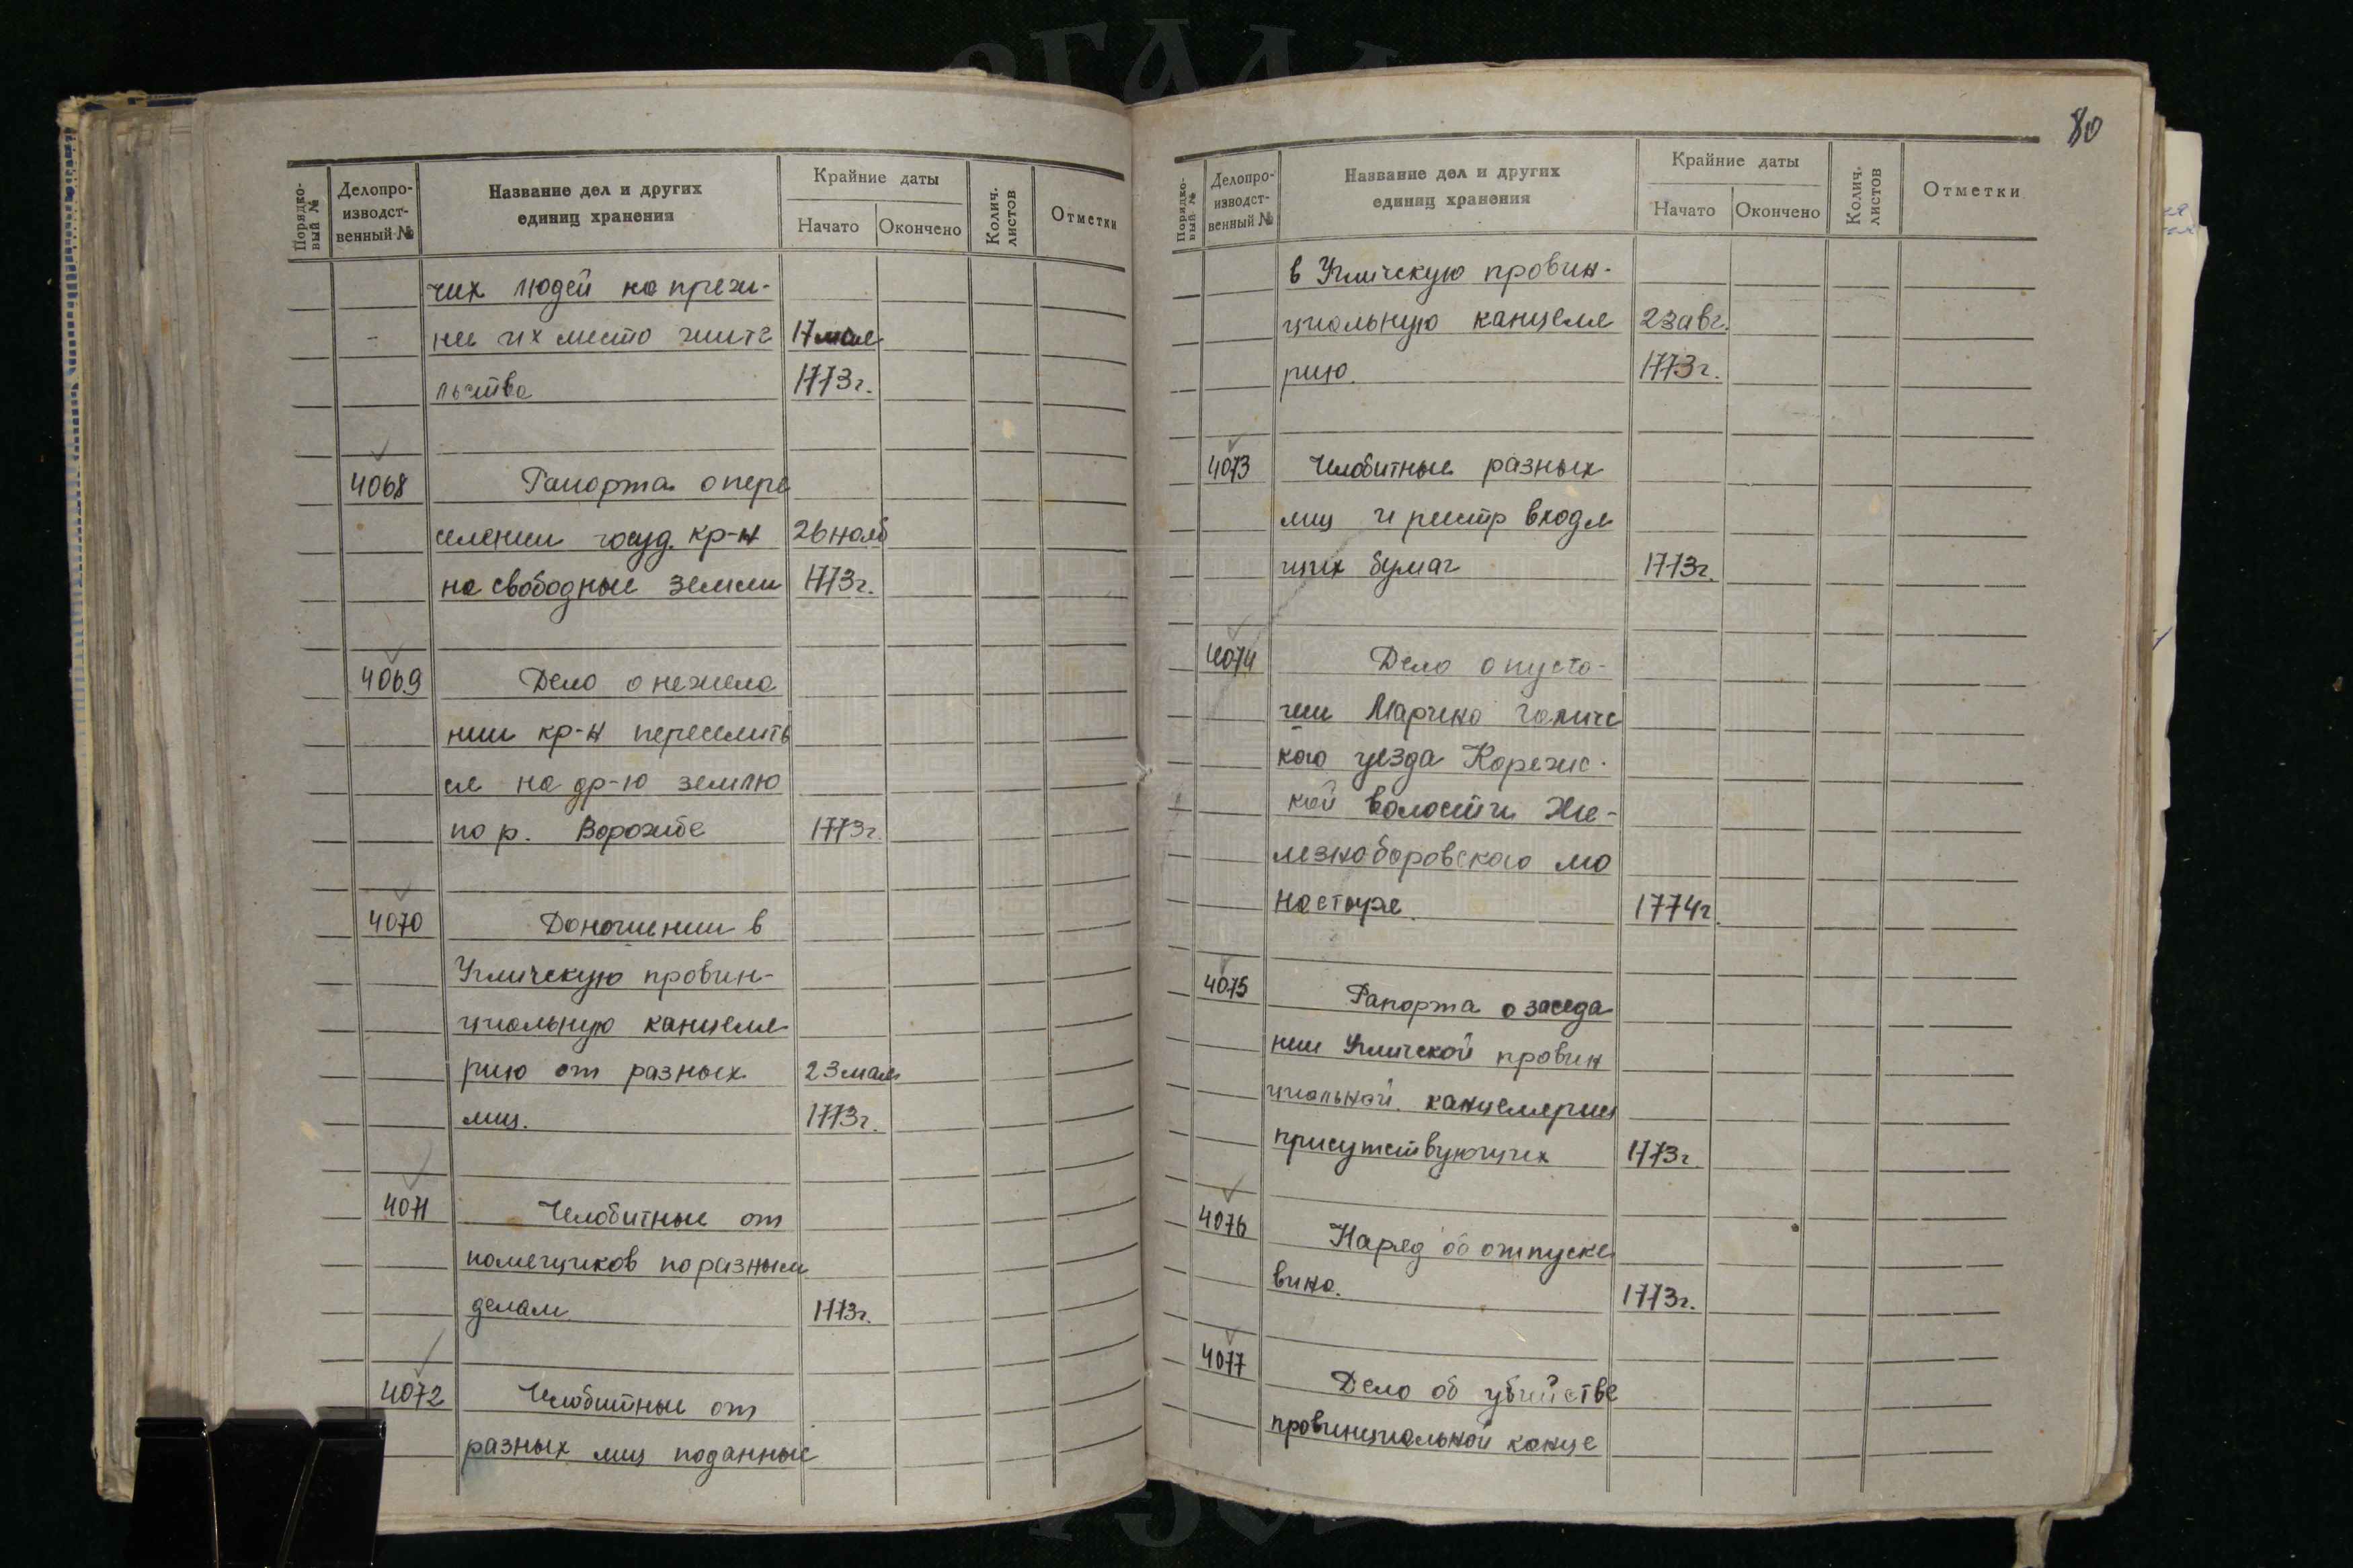 Порядко-
вый №
Делопро-
изводст-
венный №
Название дел и других
единиц хранения
Крайние даты
Начато
Окончено
Колич.
листов
Отметки
чих людей на прежи-
нее их место жите 17 мая
льства 1773г.
4068 Рапорта о пере
селении госуд. кр-н 26 нояб
на свободные земли 1773г.
4069 Дело о нежела
нии кр-н переселить
ся на др-ю землю
по р. Ворожбе 1773г.
4070 Доношении в
Угличскую провин-
циальную канцеля
рию от разных 23 мая
лиц. 1773г.
4071 Челобитные от
помещиков по разным
делам 1773г.
4072 Челобитные от
разных лиц поданные
80
Порядко-
вый №
Делопро-
изводст-
венный №
Название дел и других
единиц хранения
Крайние даты
Начато
Окончено
Колич.
листов
Отметки
в Угличскую провин-
циальную канцеля 23 авг.
рию. 1773г.
4073 Челобитные разных
лиц и реестр входя
щих бумаг 1773г.
4074 Дело о пусто-
ши Марино Галичс
кого уезда Корежс-
кой волости Же-
лезноборовского мо
настыря. 1774г.
4075 Рапорта о заседа
нии Угличской провин
циальной канцелярии
присутствующих 1773г.
4076 Наряд об отпуске
вина. 1773г.
4077 Дело об убийстве
провинциальной канце